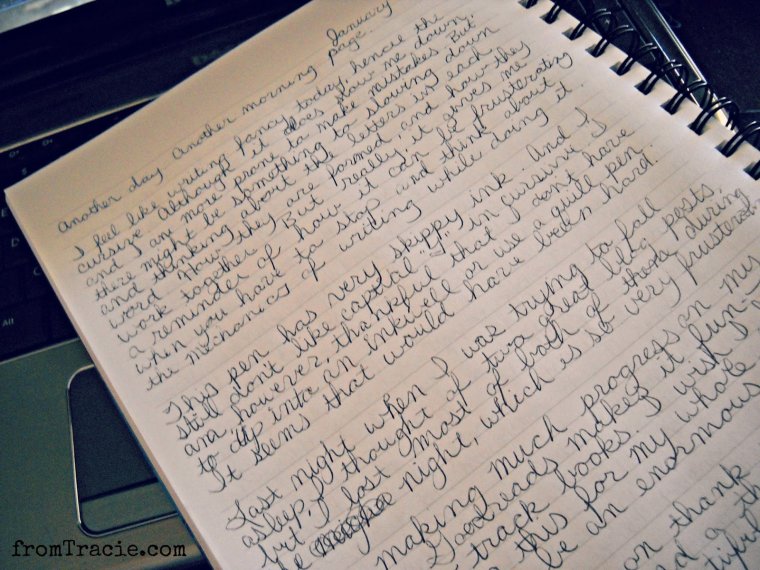 January
another day another morning page.
I feel like writing fancy today, hence the
cursive. Although it does slow me down
and I am more prone to make mistakes. But
there might be something to slowing down
and thinking about the letters in each
word. How they are formed and how they
work together. But really, it gives me
a reminder of how it can be frusterating
when you have to stop and think about
the mechanics of writing while doing it.
This pen has very skippy ink. And I
still don't like capital "I" in cursive. I
am, however, thankful that I don't have
to dip into an inkwell or use a quill pen.
It seems that would have been hard.
Last night when I was trying to fall
asleep, I thought of two great blog posts,
but I lost most of both of those during
night, which is so very frusterating
making much progress on my
Goodreads makes it fun
track books. I wish I
this for my whole
be an enormous
on thank
fromTracie.com